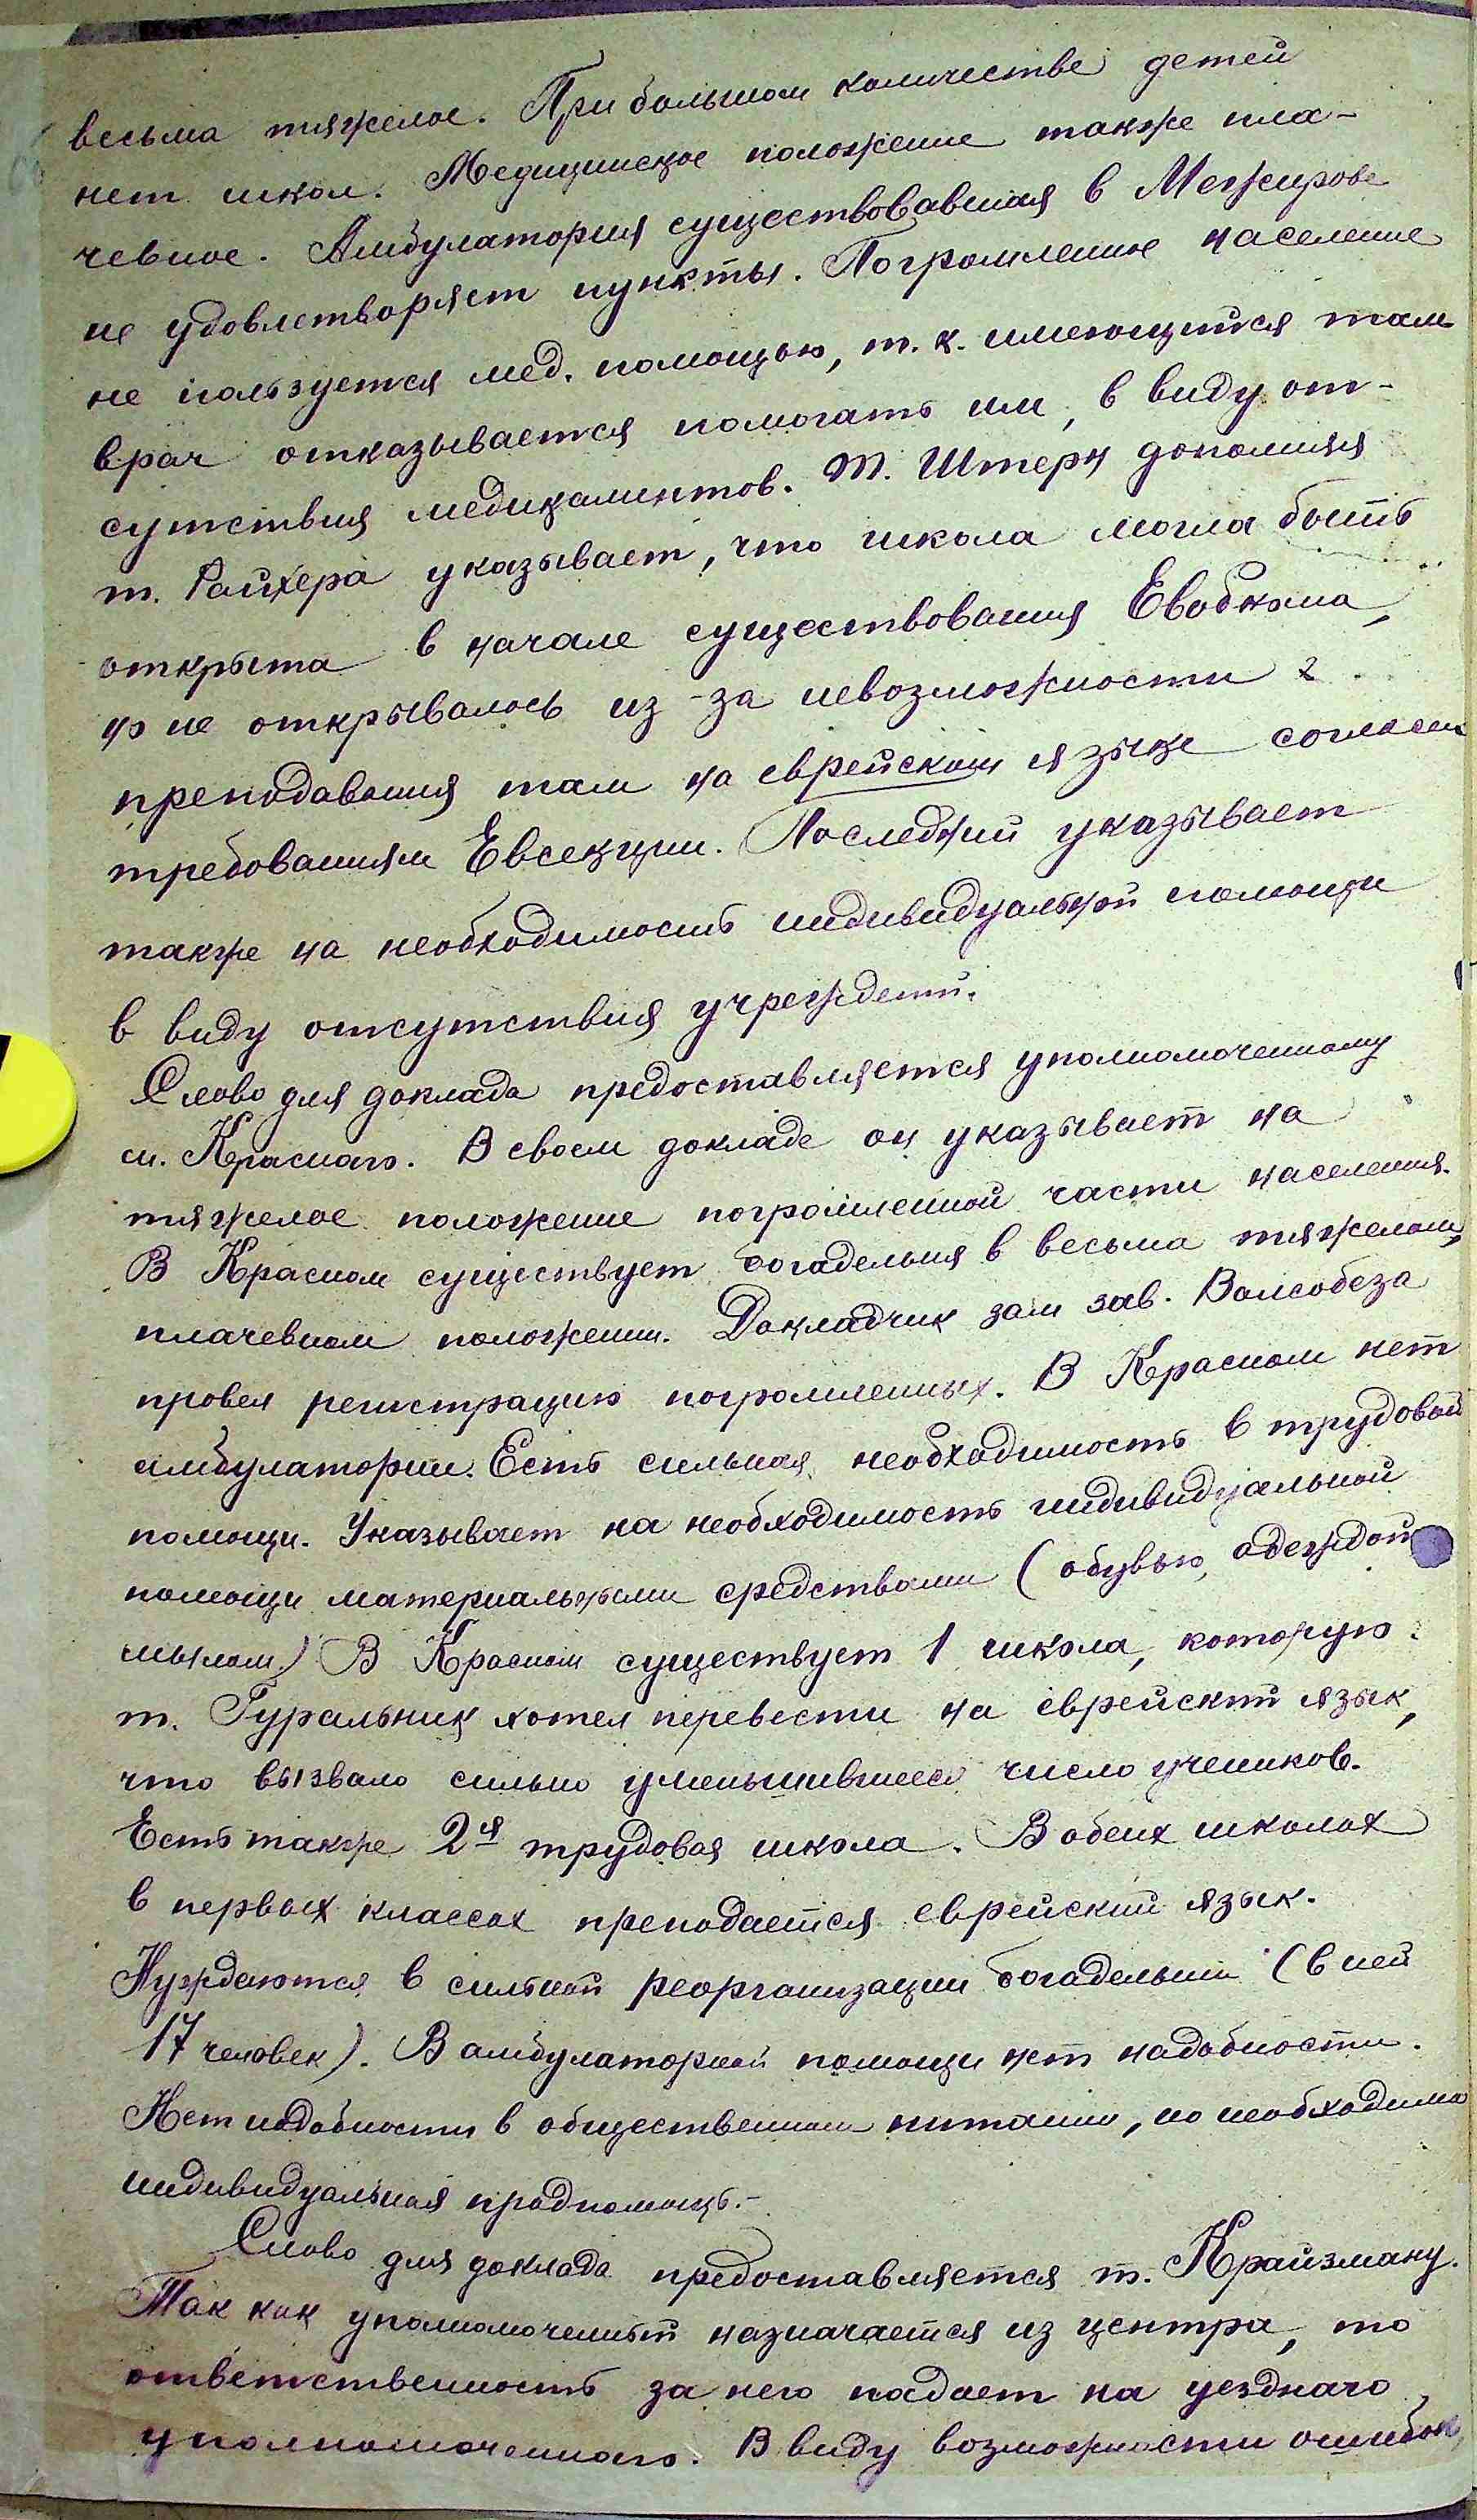 весьма тяжелое. При большом количестве детей
нет школ. Медицинское положение также пла-
чевное. Амбулатория существовавшая в Межирове
не удовлетворяет пункты. Погромленное население
не пользуется мед. помощью, т. к. имеющийся там
врач отказывается помогать им, в виду от-
сутствия медикаментов. Т. Штерн дополняя
т. Райхера указывает, что школа могла быть
открыта в начале существования Евобкома,
но не открывалось из-за невозможности
преподавания там на еврейском языке согласн
требованиям Евсекции. Последний указывает
также на необходимость индивидуальной помощи
в виду отсутствия учреждений.
Слово для доклада предоставляется уполномоченному
м. Красного. В своем докладе он указывает на
тяжелое положение погромленной части населения.
В Красном существует богадельня в весьма тяжелом,
плачевном положении. Докладчик зам зав. Волсобеза
провел регистрацию погромленных. В Красном нет
амбулатории. Есть сильная необходимость в трудовой
помощи. Указывает на необходимость индивидуальной
помощи материальными средствами (обувью, одеждой
мылом) В Красном существует 1 школа, которую
т. Гуральник хотел перевести на еврейский язык,
что вызвало сильно уменьшившееся число учеников.
Есть также 2я трудовая школа. В обеих школах
в первых классах преподается еврейский язык.
Нуждаются в сильной реорганизации богадельни (в ней
17 человек). В амбулаторной помощи нет надобности.
Нет надобности в общественном питании, но необходима
индивидуальная продпомощь.-
Слово для доклада предоставляется т. Крайзману.
Так как уполномоченный назначается из центра, то
ответственность за него падает на уездного
уполномоченного. В виду возможности ошибок,